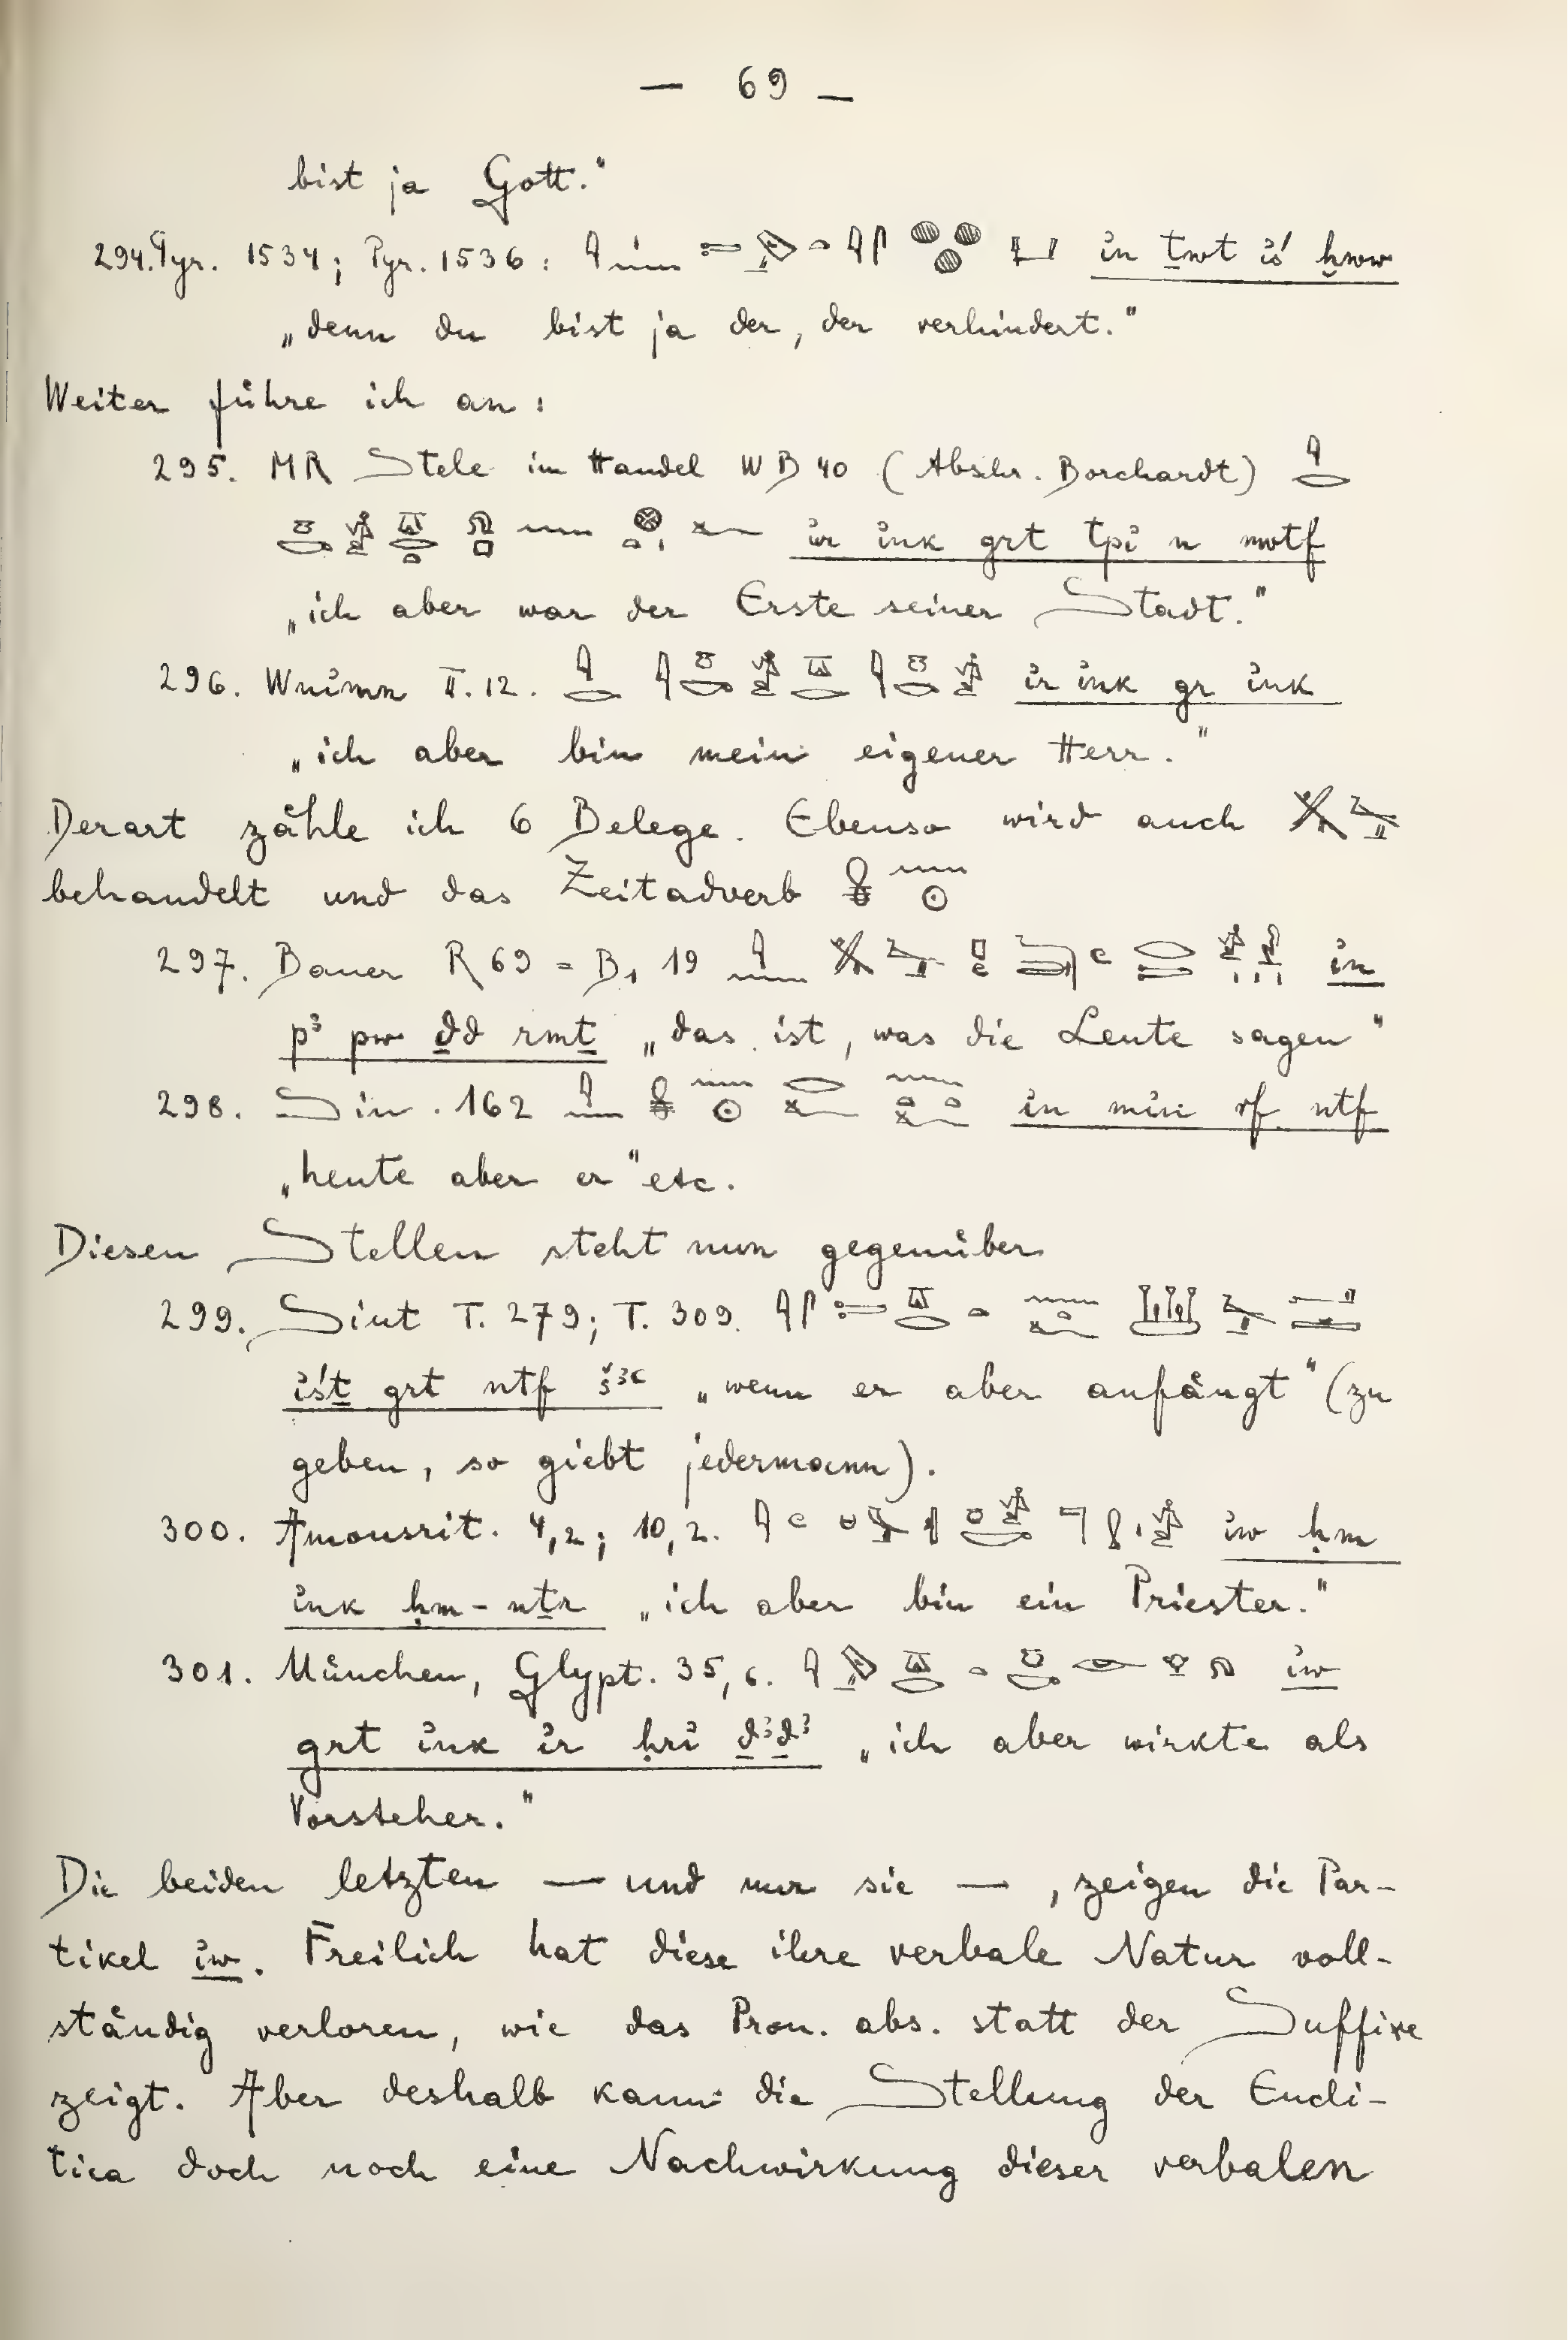 — 69 —
bist ja Gott."
294. Pyr. 1534; Pyr. 1536: in ṯwt iś ḫww
„denn du bist ja der, der verhindert."
Weiter führe ich an:
295. MR Stele im Handel WB 40 (Abschr. Borchardt)
ir ink grt tpi n nwtf
„ich aber war der Erste seiner Stadt."
296. Wnimn II. 12. ir ink gr ink
„ich aber bin mein eigener Herr."
Derart zähle ich 6 Belege. Ebenso wird auch
behandelt und das Zeitadverb
297. Bauer R 69 = B₁ 19 in
pꜣ pw ḏd rmṯ „das ist, was die Leute sagen"
298. Sin. 162 in min rf ntf
„heute aber er" etc.
Diesen Stellen steht nun gegenüber
299. Siut T. 279; T. 309.
iśṯ grt ntf šꜣꜥ „wenn er aber anfängt" (zu
geben, so giebt jedermann).
300. Amonsrit. 4,2; 10,2. iw ḥm
ink ḥm-nṯr „ich aber bin ein Priester."
301. München, Glypt. 35,6. iw
grt ink ir ḥri ḏꜣḏꜣ „ich aber wirkte als
Vorsteher."
Die beiden letzten — und nur sie —, zeigen die Par-
tikel iw. Freilich hat diese ihre verbale Natur voll-
ständig verloren, wie das Pron. abs. statt der Suffixe
zeigt. Aber deshalb kann die Stellung der Encli-
tica doch noch eine Nachwirkung dieser verbalen